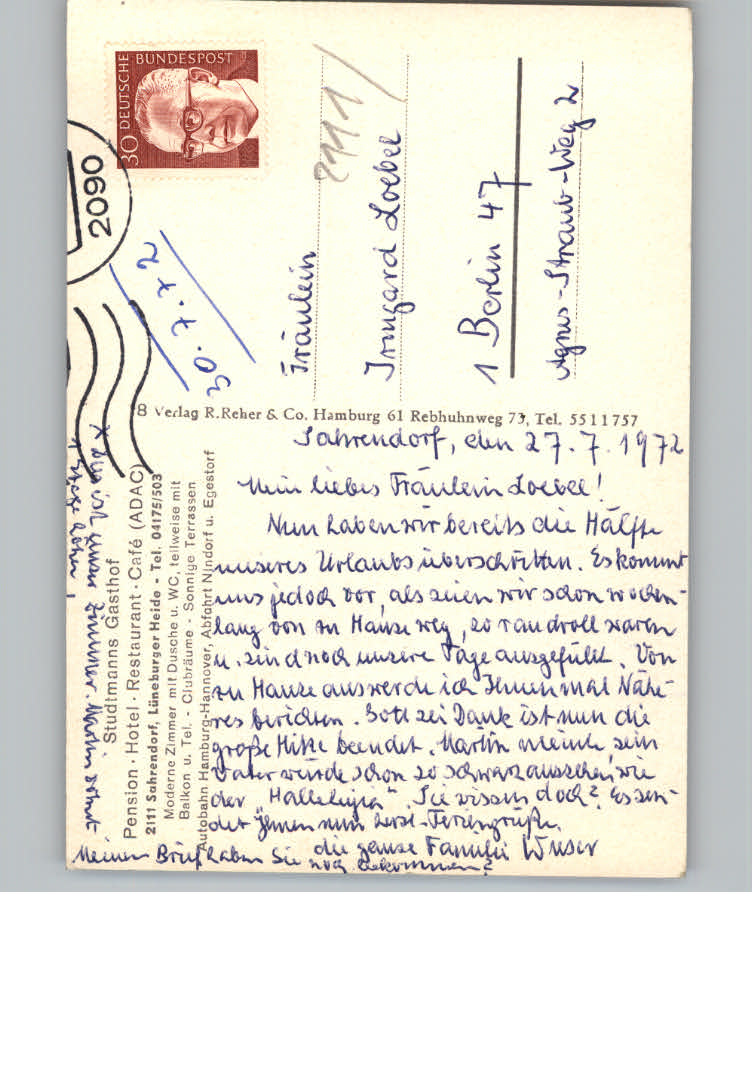 DEUTSCHE BUNDESPOST
30
2090
2111
30.7.72
Fräulein
Irmgard Loebel
1 Berlin 47
Agnes-Straub-Weg 2
8 Verlag R.Reher & Co. Hamburg 61 Rebhuhnweg 73, Tel. 5511757
Studtmanns Gasthof
Pension · Hotel · Restaurant · Café (ADAC)
2111 Sahrendorf, Lüneburger Heide - Tel. 04175/503
Moderne Zimmer mit Dusche u. WC, teilweise mit
Balkon u. Tel. - Clubräume - Sonnige Terrassen
Autobahn Hamburg-Hannover, Abfahrt Nindorf u. Egestorf
Sahrendorf, den 27.7.1972
Mein liebes Fräulein Loebel!
Nun haben wir bereits die Hälfte
unseres Urlaubs überschritten. Es kommt
uns jedoch vor, als seien wir schon wochen-
lang von zu Hause weg, so randvoll waren
u. sind noch unsere Tage ausgefüllt. Von
zu Hause aus werde ich Ihnen mal Nähe-
res berichten. Gott sei Dank ist nun die
große Hitze beendet. Martin meinte, sein
Vater würde schon so schwarz aussehen, wie
der „Halleluja". Sie wissen doch? Es sen-
det Ihnen nun herzl. Feriengrüße
die ganze Familie
Meinen Brief haben Sie
noch bekommen?
x das ist unser Zimmer. Martin wohnt
1 Etage höher!